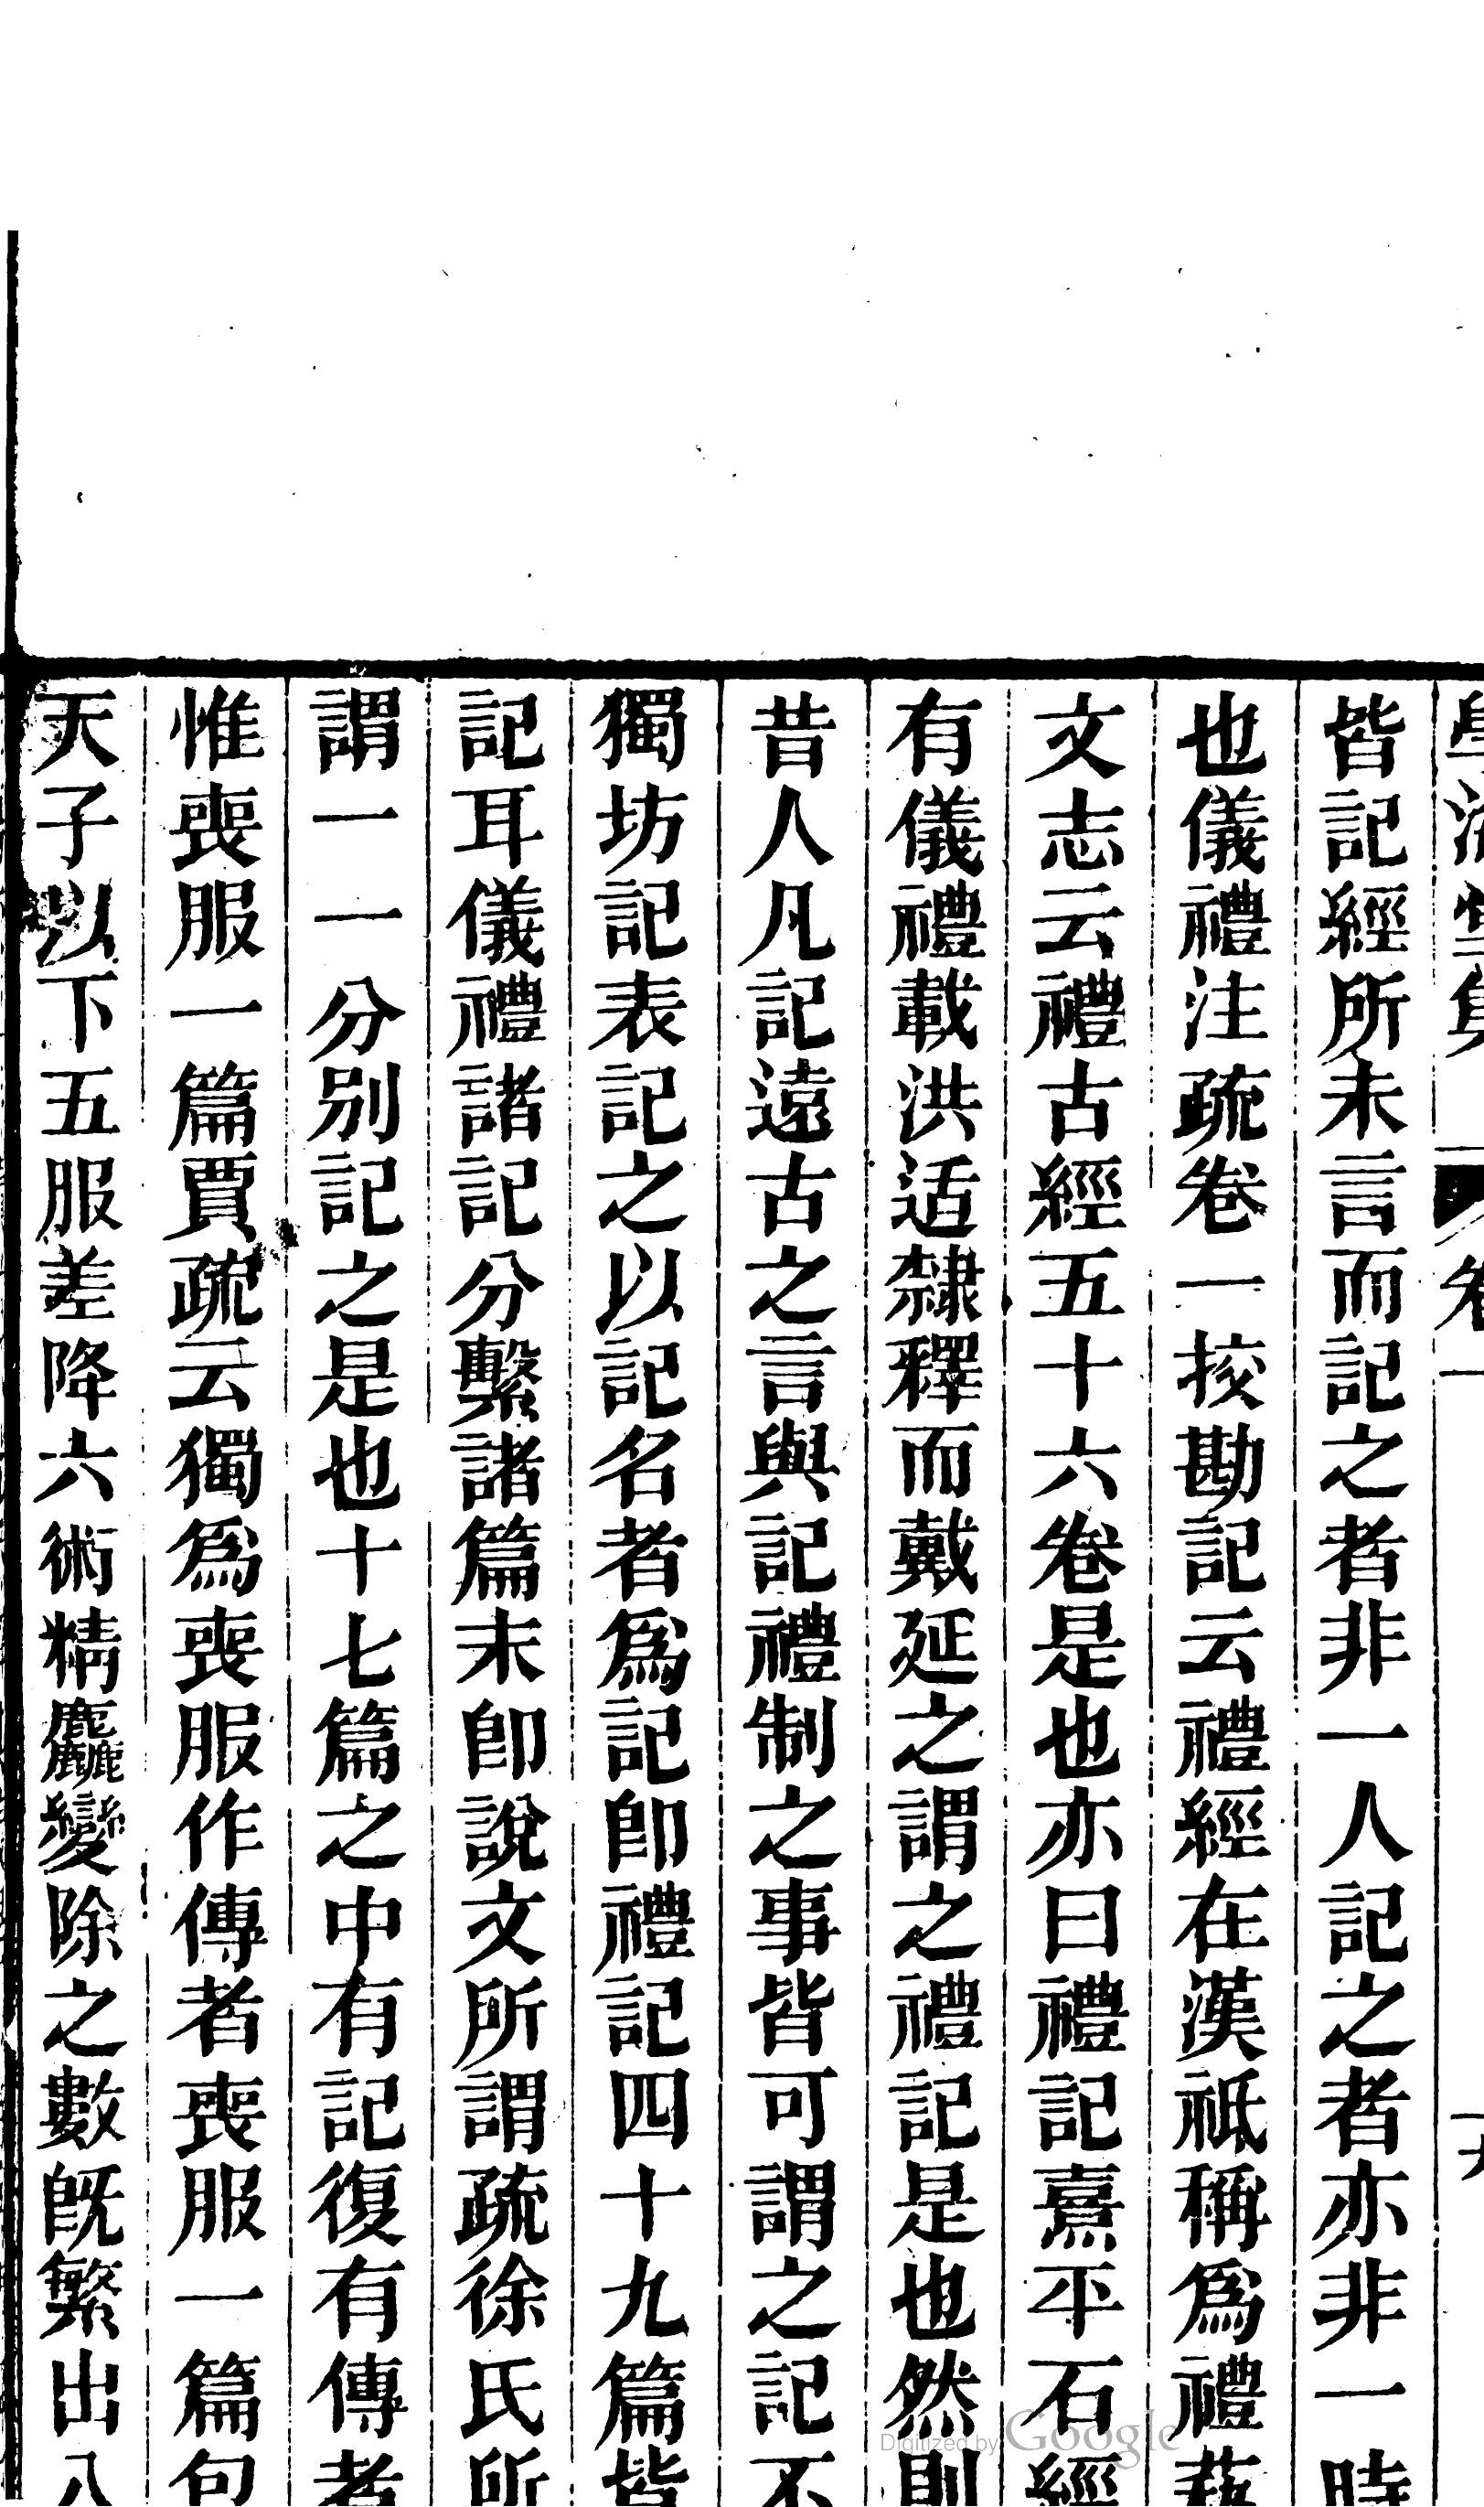 皆記經所未言而記之者非一人記之者亦非一時
也儀禮注疏卷一挍勘記云禮經在漢祗稱爲禮藝
文志云禮古經五十六卷是也亦曰禮記熹平石經
有儀禮載洪适隸釋而戴延之謂之禮記是也然則
昔人凡記遠古之言與記禮制之事皆可謂之記不
獨坊記表記之以記名者爲記卽禮記四十九篇皆
記耳儀禮諸記分繫諸篇末卽說文所謂疏徐氏所
謂一一分別記之是也十七篇之中有記復有傳者
惟喪服一篇賈疏云獨爲喪服作傳者喪服一篇句
天子以下五服差降六術精麤變除之數旣繁出八
Digitized by Google